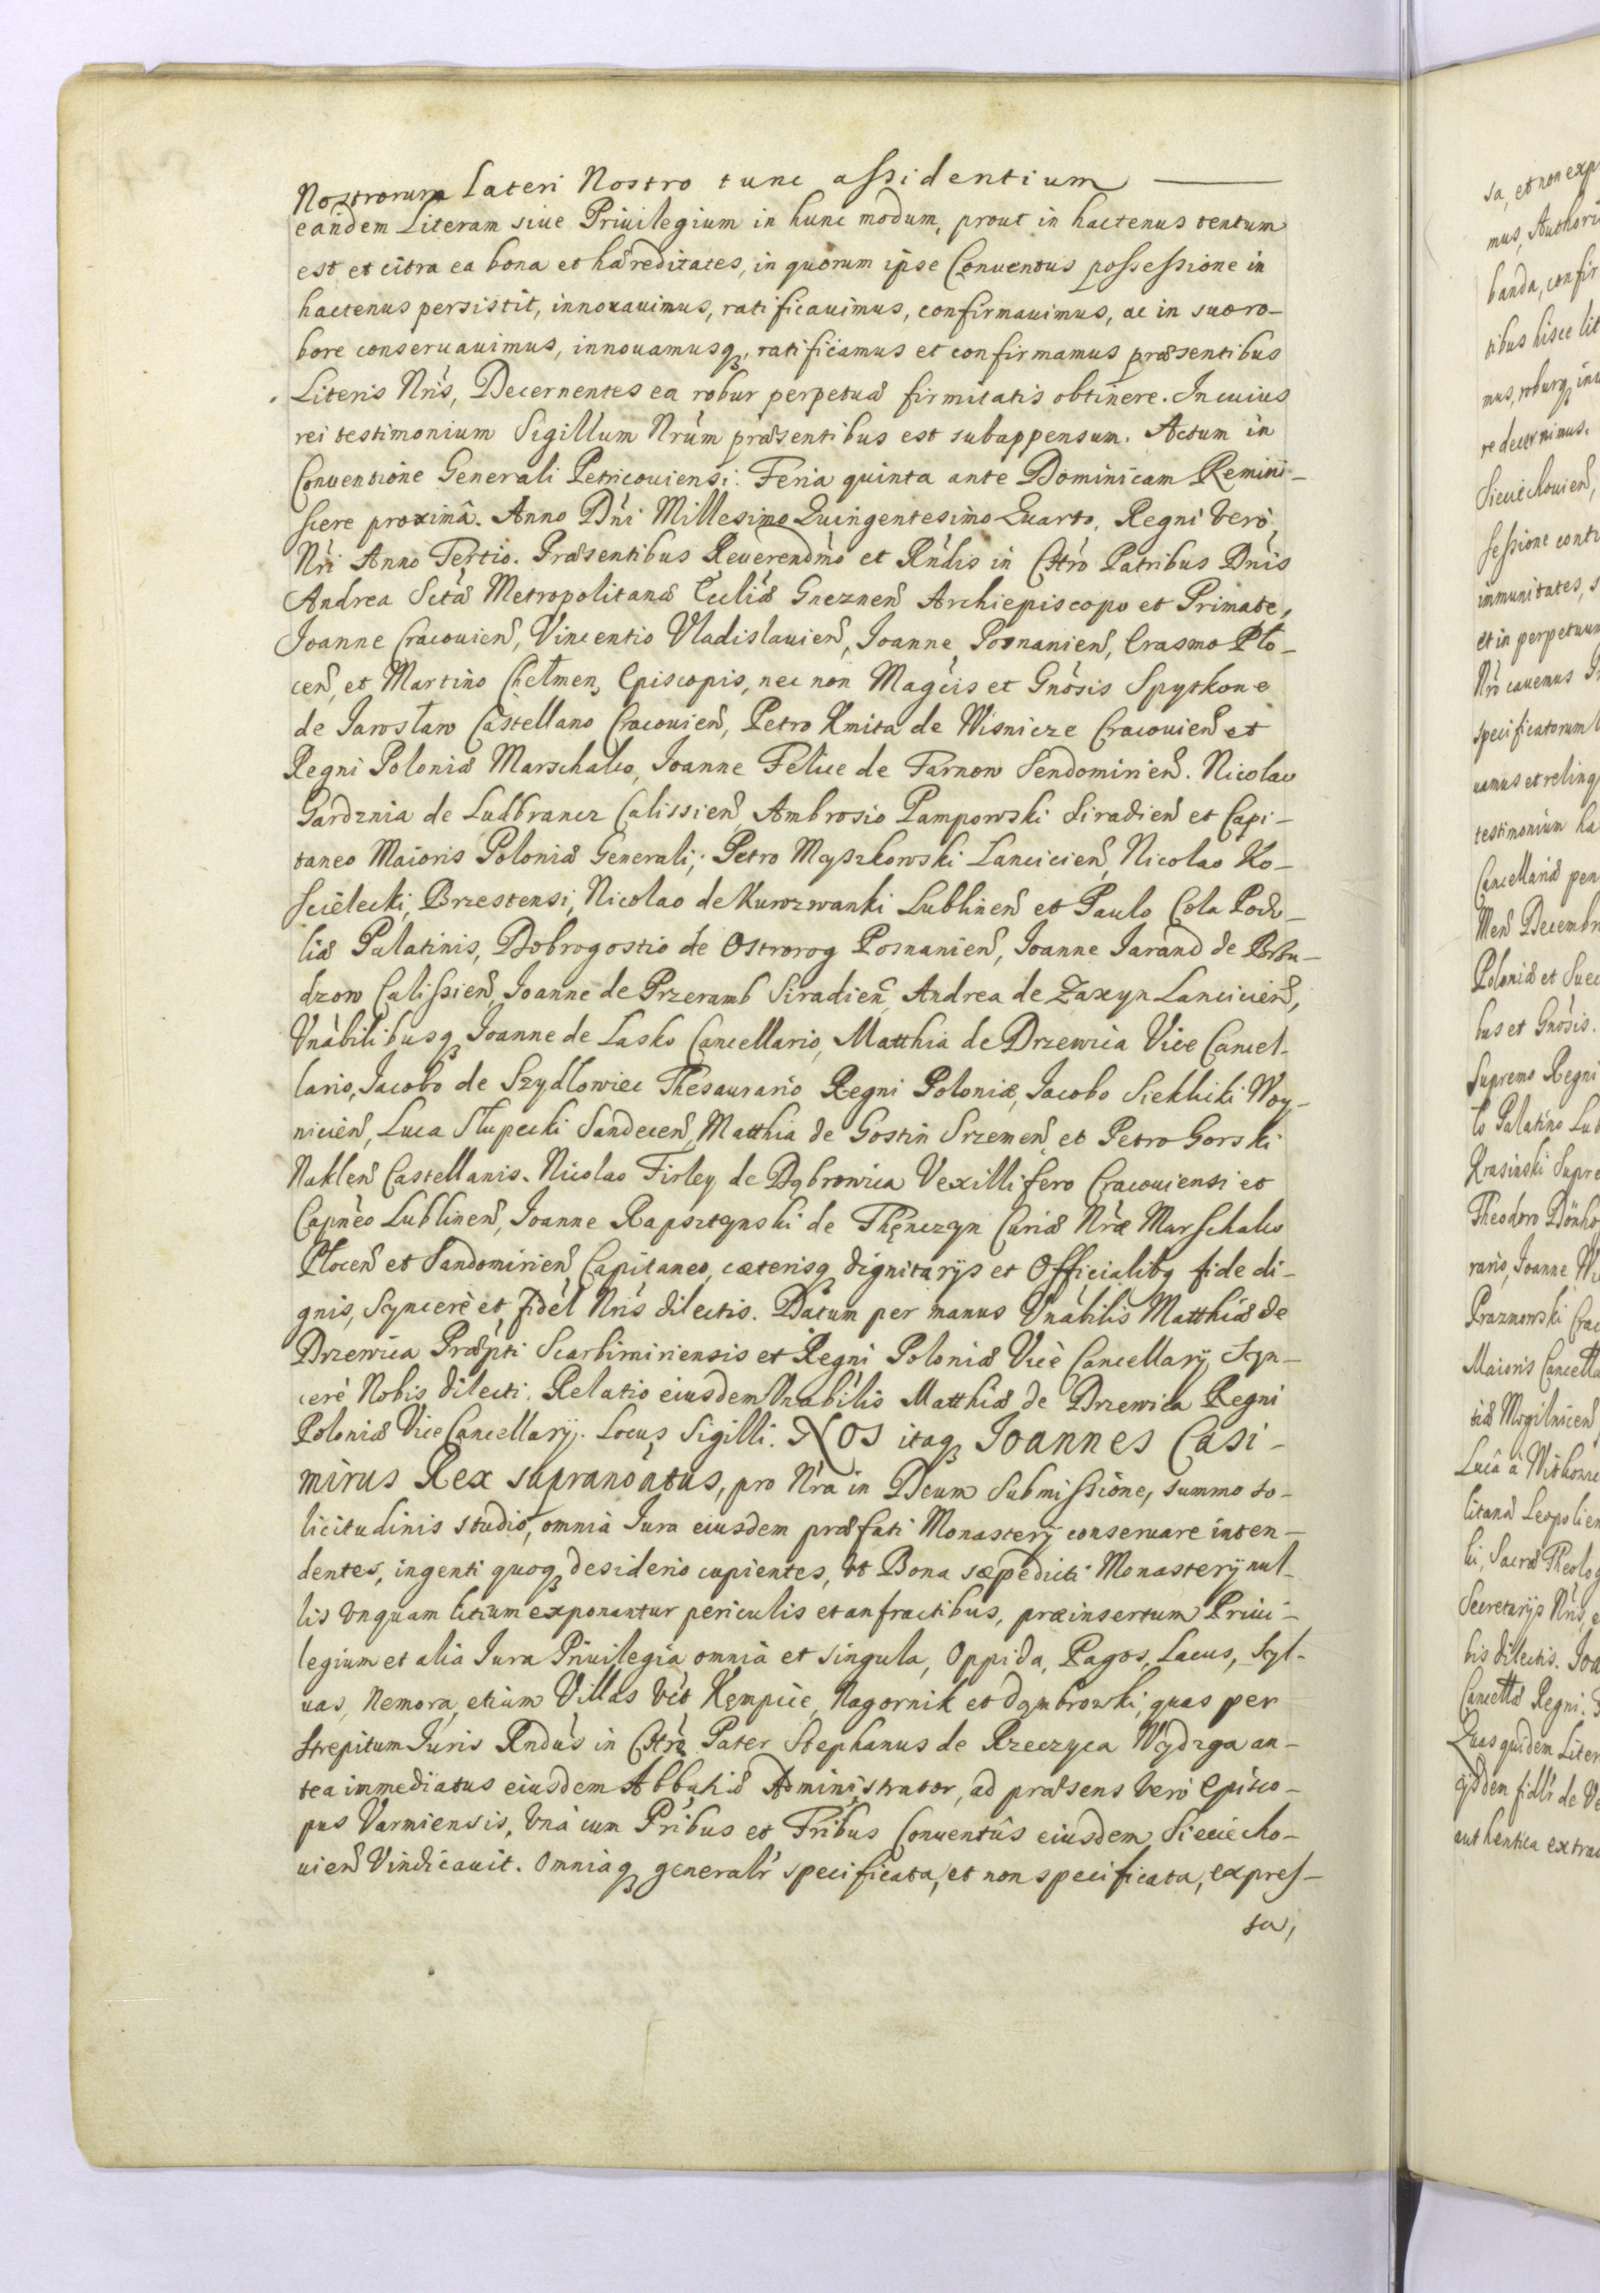 Nostrorum Lateri Nostro tunc aſsidentium
eandem Literam siue Priuilegium in hunc modum, prout in hactenus tentum
est et citra ea bona et hæreditates, in quorum ipse Conuentus poſseſsione in
hactenus persistit, innouauimus, ratificauimus, confirmauimus, ac in suo ro-
bore conseruauimus, innouamusq, ratificamus et confirmamus præsentibus
Literis Nris, Decernentes ea robur perpetuæ firmitatis obtinere. In cuius
rei testimonium Sigillum Nrum præsentibus est subappensum. Actum in
Conuentione Generali Petricouiensi. Feria quinta ante Dominicam Remini-
scere proximâ. Anno Dni Millesimo Quingentesimo Quarto, Regni verò
Nri Anno Tertio. Præsentibus Reuerendmo et Rndis in Chro Patribus Dnis
Andrea Sctæ Metropolitanæ Eccliæ Gneznen Archiepiscopo et Primate,
Joanne Cracouien, Vincentio Vladislauien, Joanne Posnanien, Erasmo Plo-
cen, et Martino Chełmen, Episcopis, nec non Magcis et Gnosis Spytkone
de Jarosław Castellano Cracouien, Petro Kmita de Wisnicze Cracouien et
Regni Poloniæ Marschalco, Joanne Felice de Tarnow Sendomirien. Nicolao
Gardznia de Ludbrancz Calissien, Ambrosio Pampowski Siradien et Capi-
taneo Maioris Poloniæ Generali; Petro Myszkowski Lancicien, Nicolao Ko-
scielecki, Brzestensi, Nicolao de Kurozwanki Lublinen et Paulo Cola Podo-
liæ Palatinis, Dobrogostio de Ostrorog Posnanien, Joanne Jarand de
dzow Caliſsien, Joanne de Przeramb Siradien, Andrea de Zaxyn Lancicien,
Vnabilibusq Joanne de Lasko Cancellario, Matthia de Drzewica Vice Cancel-
lario, Jacobo de Szydłowiec Thesaurario Regni Poloniæ, Jacobo Siekluki Woy-
nicien, Luca Słupecki Sandecen, Matthia de Gostin Srzemen, et Petro Gorski
Naklen Castellanis. Nicolao Firley de Dąbrowica Vexillifero Cracouiensi et
Capneo Lublinen, Joanne Rapsztynski de Thęnczyn Curiæ Nræ Marschalco
Płocen et Sandomirien Capitaneo, cæterisq dignitarijs et Officialibq fide di-
gnis, Syncerè et fidel Nris dilectis. Datum per manus Vnabilis Matthiæ de
Drzewica Præpti Scarbimiriensis et Regni Poloniæ Vice Cancellarij Syn-
cerè Nobis dilecti. Relatio eiusdem Vnabilis Matthiæ de Drzewica Regni
Poloniæ Vice Cancellarij. Locus Sigilli. NOS itaq Joannes Casi-
mirus Rex supranoatus, pro Nra in Deum Submiſsione, summo so-
licitudinis studio, omnia Jura eiusdem præfati Monasterij conseruare inten-
dentes, ingenti quoq desiderio cupientes, vt Bona sæpedicti Monasterij nul-
lis vnquam litium exponantur periculis et anfractibus, præinsertum Priui-
legium et alia Jura Priuilegia omnia et singula, Oppida, Pagos, Lacus, Syl-
uas, Nemora, etiam Villas vct Kępice, Nagornik et Dymbrowki, quas per
strepitum Juris Rndus in Chro Pater Stephanus de Rzeczyca Wydzga an-
tea immediatus eiusdem Abbatiæ Administrator, ad præsens verò Episco-
pus Varmiensis, vnà cum Pribus et Fribus Conuentûs eiusdem Sieciecho-
uien Vindicauit. Omniaq generalr specificata, et non specificata, expreſ-
sa,
sa, et non exp
mus, Authori
banda, confir
tibus hisce lit
mus, roburq
re decernimus.
Sieciechouien,
seſsione cont
immunitates, s
et in perpetuum
Nro cauemus
specificatorum
uamus et relinq
testimonium ha
Cancellariæ pen
Men Decembr
Poloniæ et Suec
bus et Gnosis.
Supremo Regni
to Palatino Lub
Krasinski Supre
Theodoro Dönho
rario, Joanne
Prazmowski Crac
Maioris Cancella
tiæ Mogilnicen
Luca à
litanæ Leopolien
ki, Sacræ Theolog
Secretarijs Nris,
bis dilectis. Joa
Cancellæ Regni.
Quas quidem Liter
de
authentica extrac